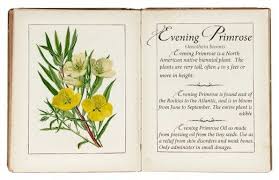 Evening Primrose
Oenothera biennis
Evening Primrose is a North
American native biennial plant. The
plants are very tall, often 4 to 5 feet or
more in height.
Evening Primrose is found east of
the Rockies to the Atlantic, and is in bloom
from June to September. The entire plant is
edible.
Evening Primrose Oil as made
from pressing oil from the tiny seeds. Use as
a relief from skin disorders and weak bones.
Only administer in small dosages.